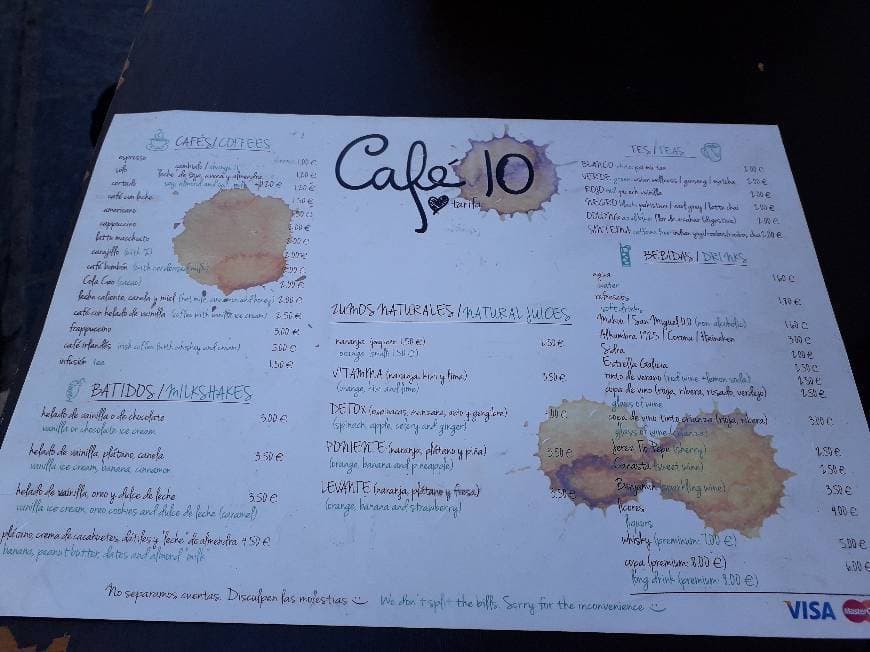 CAFÉS/COFFEES
espresso
solo
leche de soja, avena y almendra
cortado
café con leche
americano
cappuccino
latte macchiato
carajillo
café bombón
Cola Cao (cacao) 2.00 €
leche caliente, canela y miel (hot milk, cinnamon and honey) 2.00 €
café con helado de vainilla (coffee with vanilla ice cream) 2.50 €
frappuccino 3.00 €
café irlandés (irish coffee with whiskey and cream) 5.00 €
infusión tea 1.50 €
BATIDOS/MILKSHAKES
helado de vainilla o de chocolate 3.00 €
vanilla or chocolate ice cream
helado de vainilla, plátano, canela 3.50 €
vanilla ice cream, banana, cinnamon
helado de vainilla, oreo y dulce de leche 3.50 €
vanilla ice cream, oreo cookies and dulce de leche (caramel)
plátano, crema de cacahuetes, dátiles y "leche" de almendra 4.50 €
banana, peanut butter, dates and almond "milk"
Café 10
tarifa
ZUMOS NATURALES/NATURAL JUICES
naranja
orange
VITAMINA (naranja, kiwi y lima) 3.50 €
(orange, kiwi and lime)
DETOX (espinacas, manzana, apio y gengibre)
(spinach, apple, celery and ginger)
PONIENTE (naranja, plátano y piña) 3.50 €
(orange, banana and pineapple)
LEVANTE (naranja, plátano y fresa) 3.50 €
(orange, banana and strawberry)
TES/TEAS
BLANCO
VERDE
ROJO
NEGRO
BEBIDAS/DRINKS
agua 1.60 €
water
refrescos 1.70 €
soft drinks
Mahou / San Miguel 0.0 (non alcoholic) 1.60 €
Alhambra 1925 / Corona / Heineken
Sidra
Estrella Galicia
tinto de verano (red wine + lemon soda)
copa de vino (rioja, ribera, rosado, verdejo) 2.50 €
glass of wine
copa de vino tinto crianza (rioja, ribera) 3.00 €
glass of wine (crianza)
Jerez Tío Pepe (sherry) 2.50 €
(sweet wine) 2.50 €
Benjamín (sparkling wine) 3.50 €
licores 4.00 €
liquors
whisky (premium 7.00 €) 5.00 €
copa (premium: 8.00 €) 6.00 €
long drink (premium: 8.00 €)
No separamos cuentas. Disculpen las molestias
We don't split the bills. Sorry for the inconvenience
VISA